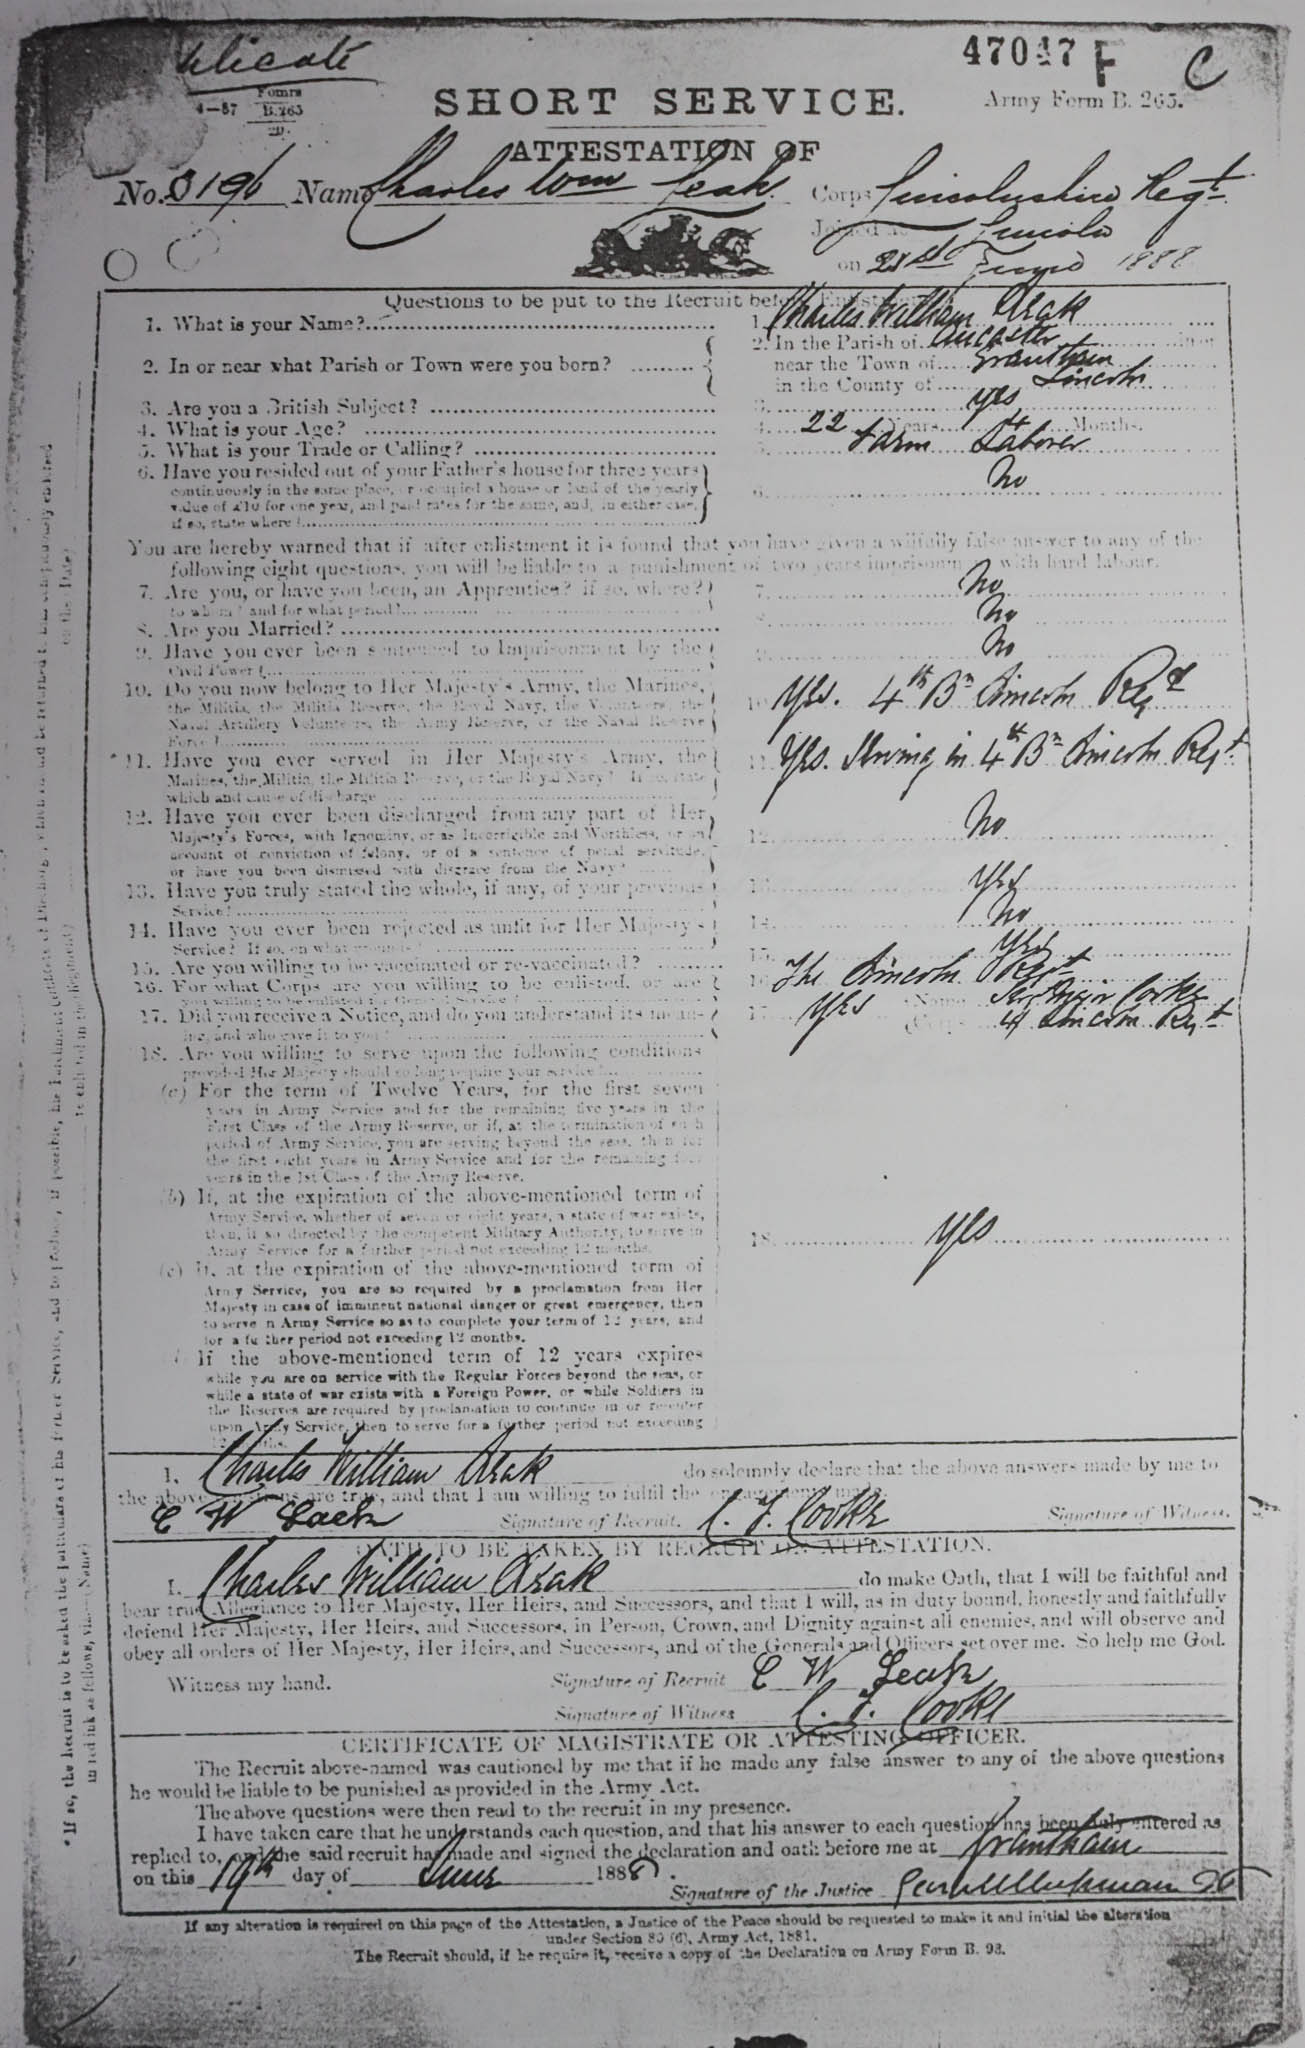 47047 F C
Fomrs
4—87 B.265
SHORT SERVICE. Army Form B. 265.
ATTESTATION OF
No. Name Charles Wm Leak Corps Lincolnshire Regt
Joined at Lincoln
on 21st June 1888
Questions to be put to the Recruit before Enlistment.
1. What is your Name? 1. Charles William Leak
2. In or near what Parish or Town were you born? 2. In the Parish of Ancaster in or
near the Town of Grantham
in the County of Lincoln
3. Are you a British Subject? 3. Yes
4. What is your Age? 4. 22 Years 4 Months.
5. What is your Trade or Calling? 5. Farm Laborer
6. Have you resided out of your Father's house for three years
continuously in the same place, or occupied a house or land of the yearly
value of £10 for one year, and paid rates for the same, and, in either case,
if so, state where? 6. No
You are hereby warned that if after enlistment it is found that you have given a wilfully false answer to any of the
following eight questions, you will be liable to a punishment of two years imprisonment with hard labour.
7. Are you, or have you been, an Apprentice? if so, where?
to whom? and for what period? 7. No
8. Are you Married? 8. No
9. Have you ever been sentenced to Imprisonment by the
Civil Power? 9. No
10. Do you now belong to Her Majesty's Army, the Marines,
the Militia, the Militia Reserve, the Royal Navy, the Volunteers, the
Naval Artillery Volunteers, the Army Reserve, or the Naval Reserve
Force? 10. Yes. 4th Bn Lincoln Regt
*11. Have you ever served in Her Majesty's Army, the
Marines, the Militia, the Militia Reserve, or the Royal Navy? If so, state
which and cause of discharge 11. Yes. Serving in 4th Bn Lincoln Regt
12. Have you ever been discharged from any part of Her
Majesty's Forces, with Ignominy, or as Incorrigible and Worthless, or on
account of conviction of felony, or of a sentence of penal servitude,
or have you been dismissed with disgrace from the Navy? 12. No
13. Have you truly stated the whole, if any, of your previous
Service? 13. Yes
14. Have you ever been rejected as unfit for Her Majesty's
Service? If so, on what grounds? 14. No
15. Are you willing to be vaccinated or re-vaccinated? 15. Yes
16. For what Corps are you willing to be enlisted, or are
you willing to be enlisted for General Service? 16. The Lincoln Regt
17. Did you receive a Notice, and do you understand its mean-
ing, and who gave it to you 17. Yes Name Cooke
Corps 4 Lincoln Regt
18. Are you willing to serve upon the following conditions
provided Her Majesty should so long require your service?
(a) For the term of Twelve Years, for the first seven
years in Army Service and for the remaining five years in the
First Class of the Army Reserve, or if, at the termination of such
period of Army Service, you are serving beyond the seas, then for
the first eight years in Army Service and for the remaining four
years in the 1st Class of the Army Reserve.
(b) If, at the expiration of the above-mentioned term of
Army Service, whether of seven or eight years, a state of war exists,
then, if so directed by the competent Military Authority, to serve in
Army Service for a further period not exceeding 12 months. 18. Yes
(c) If, at the expiration of the above-mentioned term of
Army Service, you are so required by a proclamation from Her
Majesty in case of imminent national danger or great emergency, then
to serve in Army Service so as to complete your term of 12 years, and
for a further period not exceeding 12 months.
If the above-mentioned term of 12 years expires
while you are on service with the Regular Forces beyond the seas, or
while a state of war exists with a Foreign Power, or while Soldiers in
the Reserves are required by proclamation to continue in or re-enter
upon Army Service, then to serve for a further period not exceeding
12 months.
I, Charles William Leak do solemnly declare that the above answers made by me to
the above questions are true, and that I am willing to fulfil the engagements made.
C W Leak Signature of Recruit. C. F. Cooke Signature of Witness.
OATH TO BE TAKEN BY RECRUIT ON ATTESTATION.
I, Charles William Leak do make Oath, that I will be faithful and
bear true Allegiance to Her Majesty, Her Heirs, and Successors, and that I will, as in duty bound, honestly and faithfully
defend Her Majesty, Her Heirs, and Successors, in Person, Crown, and Dignity against all enemies, and will observe and
obey all orders of Her Majesty, Her Heirs, and Successors, and of the Generals and Officers set over me. So help me God.
Witness my hand. Signature of Recruit C W Leak
Signature of Witness C. F. Cooke
CERTIFICATE OF MAGISTRATE OR ATTESTING OFFICER.
The Recruit above-named was cautioned by me that if he made any false answer to any of the above questions
he would be liable to be punished as provided in the Army Act.
The above questions were then read to the recruit in my presence.
I have taken care that he understands each question, and that his answer to each question has been duly entered as
replied to, and the said recruit has made and signed the declaration and oath before me at Grantham
on this 19th day of June 1888.
Signature of the Justice
If any alteration is required on this page of the Attestation, a Justice of the Peace should be requested to make it and initial the alteration
under Section 80 (6), Army Act, 1881.
The Recruit should, if he require it, receive a copy of the Declaration on Army Form B. 93.
* If so, the Recruit is to be asked the particulars of his former Service, and to produce, if possible, his Parchment Certificate of Discharge, which
in red ink as follows, viz.: (Name)